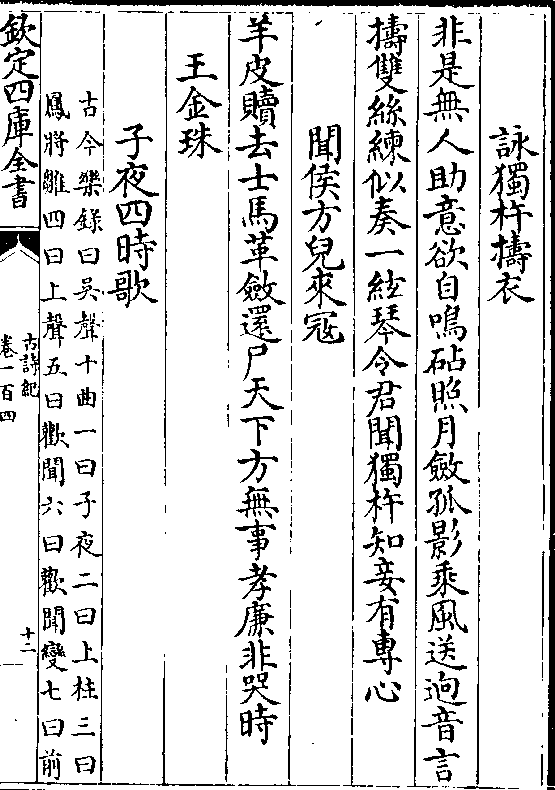 詠獨杵擣衣
非是無人助意欲自鳴砧照月斂孤影乘風送迥音言
擣雙絲練似奏一絃琴令君聞獨杵知妾有專心
聞侯方兒來冦
羊皮贖去士馬革斂還尸天下方無事孝廉非哭時
王金珠
子夜四時歌
古今樂錄曰吳聲十曲一曰子夜二曰上柱三曰
鳳將雛四曰上聲五曰歡聞六曰歡聞變七曰前
欽定四庫全書
古詩紀
卷一百四
十二